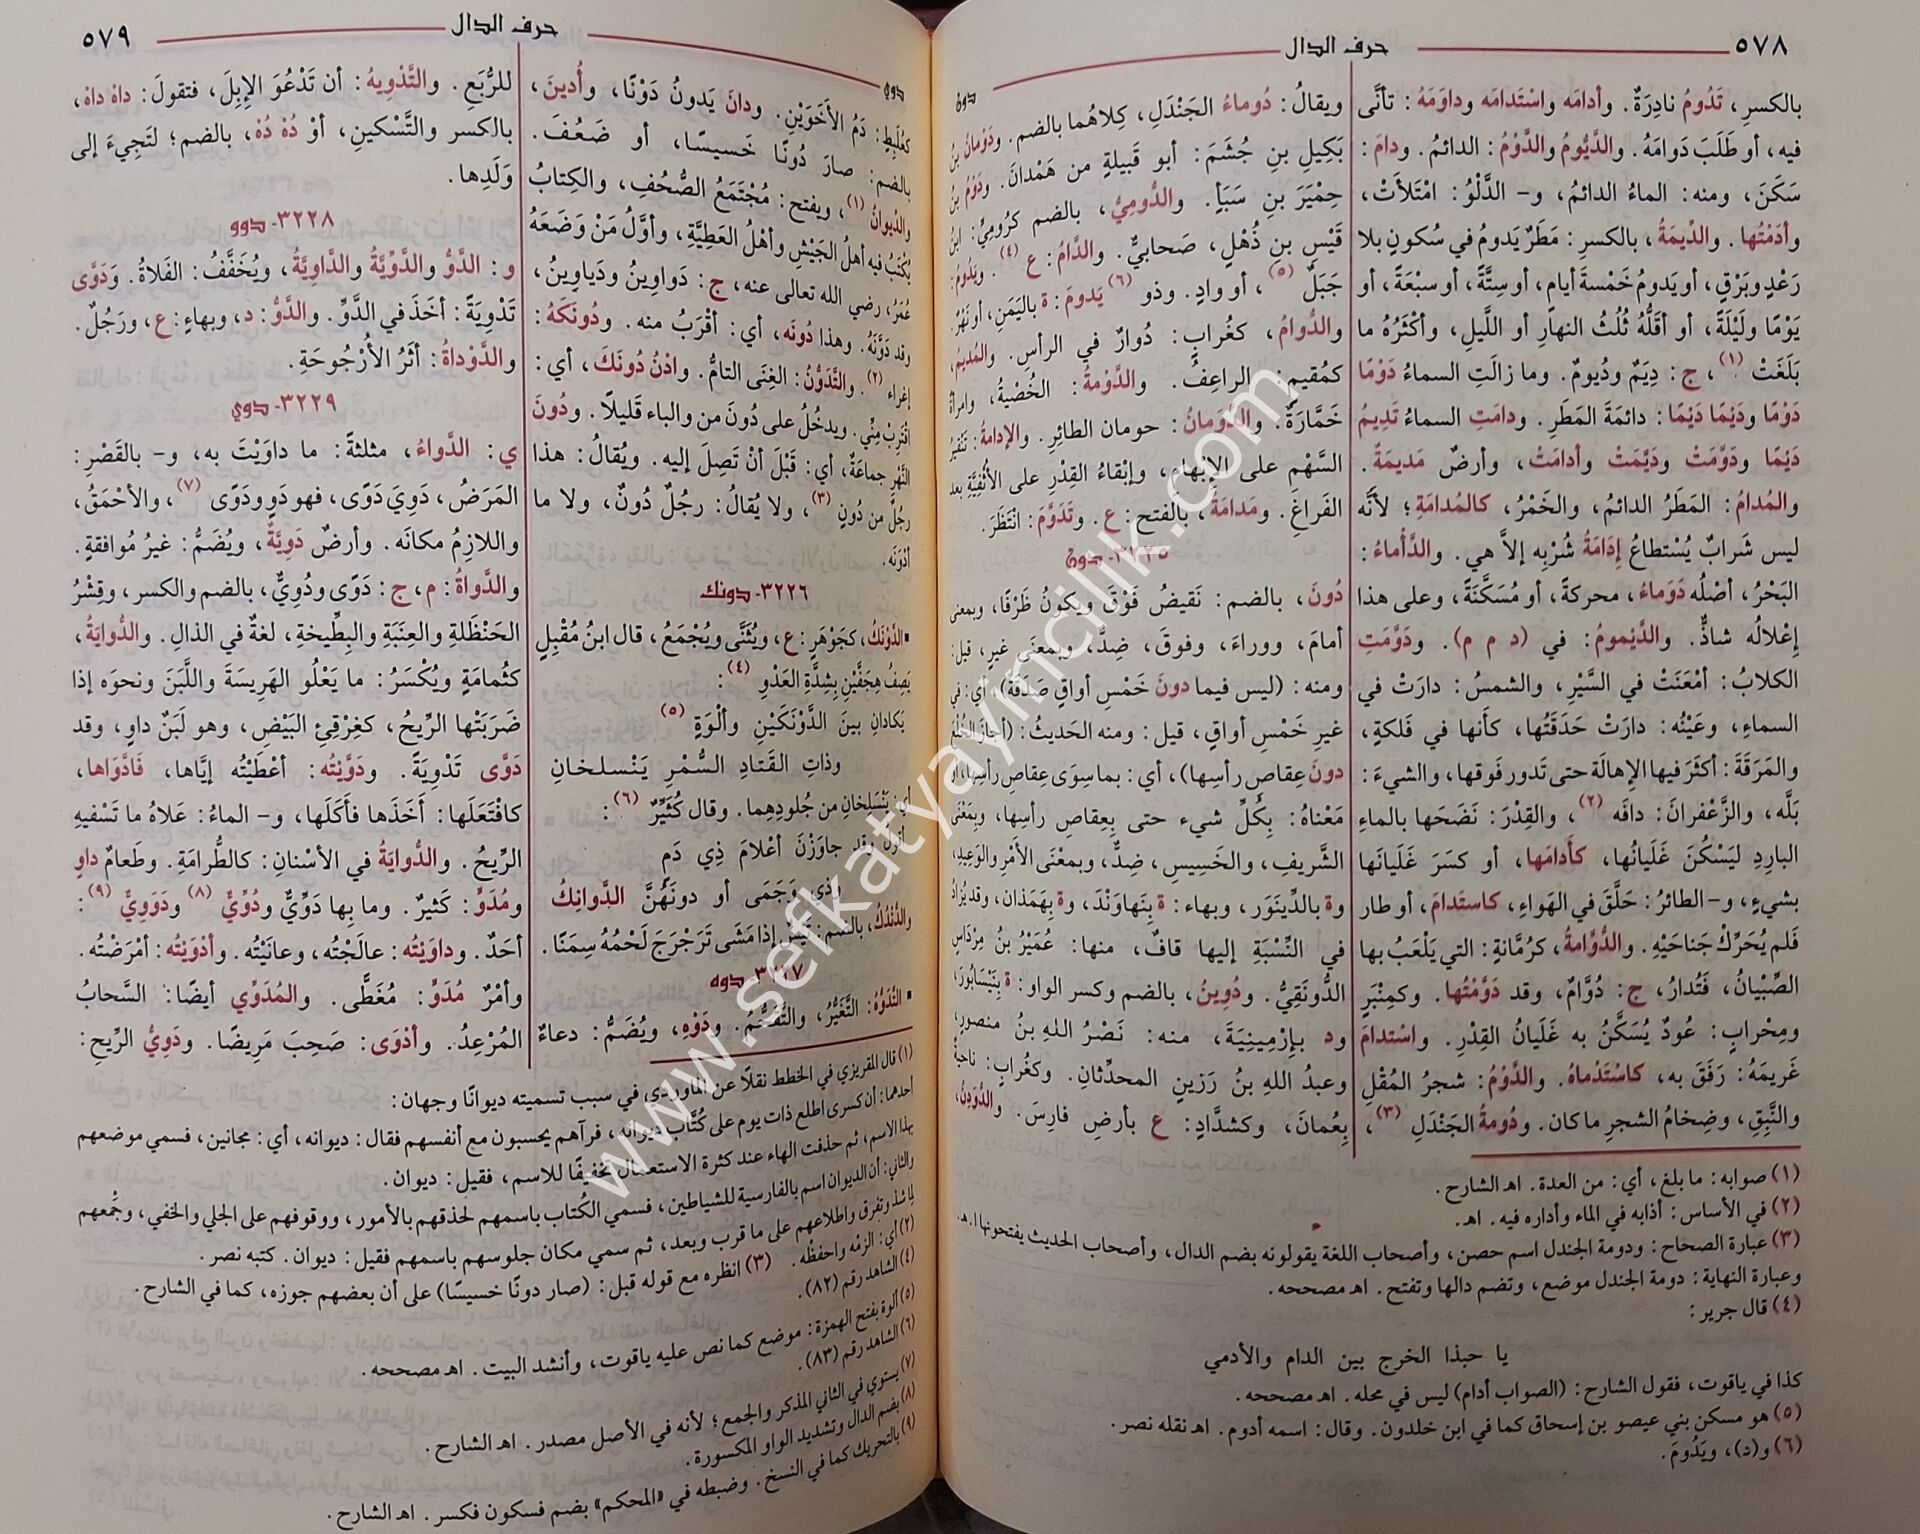 ٥٧٨
حرف الدال
دون
بالكسرِ، تَدُومُ نادِرَةٌ. وأدامَه واسْتَدامَه وداوَمَهُ: تأنَّى
فيه، أو طَلَبَ دَوامَهُ. والدَّيُّومُ والدَّوْمُ: الدائمُ. ودامَ:
سَكَنَ، ومنه: الماءُ الدائمُ، و- الدَّلْوُ: امْتَلأَتْ،
وأدَمْتُها. والدِّيمَةُ، بالكسرِ: مَطَرٌ يَدومُ في سُكونٍ بلا
رَعْدٍ وبَرْقٍ، أو يَدومُ خَمْسةَ أيامٍ، أو سِتَّةً، أو سبْعَةً، أو
يَوْمًا ولَيْلَةً، أو أقَلُّهُ ثُلُثُ النهارِ أو اللَّيلِ، وأكْثَرُهُ ما
بَلَغَتْ (١)، ج: دِيَمٌ ودُيومٌ. وما زالَتِ السماءُ دَوْمًا
دَوْمًا ودَيْمًا دَيْمًا: دائمَةَ المَطَرِ. ودامَتِ السماءُ تَدِيمُ
دَيْمًا ودَوَّمَتْ ودَيَّمَتْ وأدامَتْ، وأرضٌ مَديمَةٌ.
والمُدامُ: المَطَرُ الدائمُ، والخَمْرُ، كالمُدامَةِ؛ لأنَّه
ليس شَرابٌ يُسْتَطاعُ إدامَةُ شُرْبِه إلاَّ هي. والدَّأْماءُ:
البَحْرُ، أصْلُه دَوَماءُ، محركةً، أو مُسَكَّنَةً، وعلى هذا
إعْلالُه شاذٌّ. والدَّيْمومُ: في (د م م). ودَوَّمَتِ
الكلابُ: أمْعَنَتْ في السَّيْرِ، والشمسُ: دارَتْ في
السماءِ، وعَيْنُه: دارَتْ حَدَقَتُها، كأنها في فَلكةٍ،
والمَرَقَةَ: أكثَرَ فيها الإهالَةَ حتى تَدورَ فَوقها، والشيءَ:
بَلَّه، والزَّعْفرانَ: دافَه (٢)، والقِدْرَ: نَضَحَها بالماءِ
البارِدِ ليَسْكُنَ غَلَيانُها، كأَدامَها، أو كسَرَ غَلَيانَها
بشيءٍ، و- الطائرُ: حَلَّقَ في الهَواءِ، كاستَدامَ، أو طار
فلم يُحَرِّكْ جَناحَيْهِ. والدُّوَّامةُ، كرُمَّانةٍ: التي يَلْعَبُ بها
الصِّبْيانُ، فَتُدارُ، ج: دُوَّامٌ، وقد دَوَّمْتُها. وكمِنْبَرٍ
ومِحْرابٍ: عُودٌ يُسَكَّنُ به غَلَيانُ القِدْرِ. واسْتدامَ
غَريمَهُ: رَفَقَ به، كاسْتَدْماهُ. والدَّوْمُ: شجرُ المُقْلِ
والنَّبِقِ، وضِخامُ الشجرِ ما كان. ودُومةُ الجَنْدَلِ (٣)،
ويقالُ: دُوماءُ الجَنْدَلِ، كِلاهُما بالضم. ودَوْمانُ بنُ
بَكِيلِ بنِ جُشَمَ: أبو قَبيلةٍ من هَمْدانَ. ودَوْمُ بنُ
حِمْيَرَ بنِ سَبَأٍ. والدُّومِيُّ، بالضم كرُومِيٍّ: ابنُ
قَيْسِ بنِ ذُهْلٍ، صَحابيٌّ. والدَّامُ: ع (٤). ويَدُومُ:
جَبَلٌ (٥)، أو وادٍ. وذو (٦) يَدومَ: ة باليَمَنِ، أو نَهْرٌ.
والدُّوامُ، كغُرابٍ: دُوارٌ في الرأسِ. والمُديمُ،
كمُقيمٍ: الراعِفُ. والدَّوْمةُ: الخُصْيةُ، وامرأةٌ
خَمَّارَةٌ. والدَّوَمانُ: حومان الطائرِ. والإدامةُ: تَنْقيرُ
السَّهْمِ على الإبْهامِ، وإبْقاءُ القِدْرِ على الأُثْفِيَّةِ بعد
الفَراغِ. ومَدامَةُ، بالفتح: ع. وتَدَوَّمَ: انْتَظَرَ.
٣٢٢٥- دون
دُونَ، بالضم: نَقيضُ فَوْقَ ويكونُ ظَرْفًا، وبمعنى
أمامَ، ووراءَ، وفوقَ، ضِدٌّ، وبمعنَى غيرِ، قيل:
ومنه: (ليس فيما دونَ خَمْسِ أواقٍ صَدَقَةٌ)، أي: في
غيرِ خَمْسِ أواقٍ، قيل: ومنه الحَديثُ: (أجازَ الخُلْعَ
دونَ عِقاصِ رأسِها)، أي: بما سِوَى عِقاصِ رأسِها، أو
مَعْناهُ: بِكُلِّ شيء حتى بِعِقاصِ رأسِها، وبِمَعْنَى
الشَّريفِ، والخَسيسِ، ضِدٌّ، وبمعنَى الأمْرِ والوَعِيدِ،
وة بالدِّينَوَرِ، وبهاء: ة بِنَهاوَنْدَ، وة بِهَمَذانَ، وقد يُزادُ
في النِّسْبَةِ إليها قافٌ، منها: عُمَيْرُ بنُ مِرْداسٍ
الدُّونَقِيُّ. ودُوِينُ، بالضم وكسر الواو: ة بِنَيْسابُورَ،
ود بإرْمِينِيَةَ، منه: نَصْرُ اللهِ بنُ منصورٍ،
وعبدُ اللهِ بنُ رَزينٍ المحدِّثانِ. وكغُرابٍ: ناحيةٌ
بِعُمانَ، وكشدَّادٍ: ع بأرضِ فارِسَ. والدُّوَدِنُ،
(١) صوابه: ما بلغ، أي: من العدة. اهـ الشارح.
(٢) في الأساس: أذابه في الماء وأداره فيه. اهـ.
(٣) عبارة الصحاح: ودومة الجندل اسم حصن، وأصحاب اللغة يقولونه بضم الدال، وأصحاب الحديث يفتحونها ا.هـ.
وعبارة النهاية: دومة الجندل موضع، وتضم دالها وتفتح. اهـ مصححه.
(٤) قال جرير:
يا حبذا الخرج بين الدام والأدمي
كذا في ياقوت، فقول الشارح: (الصواب أدام) ليس في محله. اهـ مصححه.
(٥) هو مسكن بني عيصو بن إسحاق كما في ابن خلدون. وقال: اسمه أدوم. اهـ نقله نصر.
(٦) و(د)، ويَدُومَ.
دوي
حرف الدال
٥٧٩
كعُلَبِطٍ: دَمُ الأَخَوَيْنِ. ودانَ يَدونُ دَوْنًا، وأُدينَ،
بالضم: صارَ دُونًا خَسيسًا، أو ضَعُفَ.
والدِّيوانُ (١)، ويفتح: مُجْتَمَعُ الصُّحُفِ، والكِتابُ
يُكْتَبُ فيه أهلُ الجَيْشِ وأهْلُ العَطِيَّةِ، وأوَّلُ مَنْ وَضَعَهُ
عُمَرُ، رضي الله تعالى عنه، ج: دَواوِينُ ودَياوِينُ،
وقد دَوَّنَهُ. وهذا دُونَه، أي: أقْرَبُ منه. ودُونَكَهُ:
إغراء (٢). والتَّدَوُّنُ: الغِنَى التامُّ. وادْنُ دُونَكَ، أي:
اقْتَرِبْ مِنِّي. ويدخُلُ على دُونَ من والباء قَليلًا. ودُونَ
النَّهْرِ جماعَةٌ، أي: قَبْلَ أنْ تَصِلَ إليه. ويُقالُ: هذا
رجُلٌ من دُونٍ (٣)، ولا يُقالُ: رجلٌ دُونٌ، ولا ما
أدْوَنَه.
٣٢٢٦- دونك
■ الدَّوْنَكُ، كجَوْهَرٍ: ع، ويُثَنَّى ويُجْمَعُ، قال ابنُ مُقْبِلٍ
يَصِفُ هِجَفَّيْنِ بِشِدَّةِ العَدْوِ (٤):
يَكادانِ بينَ الدَّوْنَكَيْنِ وألْوَةٍ (٥)
وذاتِ القَتادِ السُّمْرِ يَنْسلخانِ
أي: يَنْسَلِخانِ من جُلودِهِما. وقال كُثَيِّرٌ (٦):
وقد جاوَزْنَ أعْلامَ ذِي دَمٍ
وذي وَجَمَى أو دونَهُنَّ الدَّوانِكُ
بالضم: إذا مَشَى تَرَجْرَجَ لَحْمُهُ سِمَنًا.
٣٢٢٧- دوه
■ التَّدَوُّهُ: التَّغَيُّرُ، والتَّقَحُّمُ. ودَوْهِ، ويُضَمُّ: دعاءٌ
للرُّبَعِ. والتَّدْوِيهُ: أن تَدْعُوَ الإِبِلَ، فتقولَ: داهْ داهْ،
بالكسر والتَّسْكينِ، أوْ دُهْ دُهْ، بالضم؛ لتَجِيءَ إلى
وَلَدِها.
٣٢٢٨- دوو
و: الدَّوُّ والدَّوِّيَّةُ والدَّاوِيَّةُ، ويُخَفَّفُ: الفَلاةُ. ودَوَّى
تَدْوِيَةً: أخَذَ في الدَّوِّ. والدَّوُّ: د، وبهاءٍ: ع، ورَجُلٌ.
والدَّوْداةُ: أثَرُ الأُرْجُوحَةِ.
٣٢٢٩- دوي
ي: الدَّواءُ، مثلثةً: ما داوَيْتَ به، و- بالقَصْرِ:
المَرَضُ، دَوِيَ دَوًى، فهو دَوٍ ودَوًى (٧)، والأحْمَقُ،
واللازِمُ مكانَه. وأرضٌ دَوِيَّةٌ، ويُضَمُّ: غيرُ مُوافقةٍ.
والدَّواةُ: م، ج: دَوًى ودُوِيٌّ، بالضم والكسر، وقِشْرُ
الحَنْظَلةِ والعِنَبَةِ والبِطِّيخةِ، لغةٌ في الذال. والدُّوايَةُ،
كثُمامَةٍ ويُكْسَرُ: ما يَعْلُو الهَرِيسَةَ واللَّبَنَ ونحوَه إذا
ضَرَبَتْها الرِّيحُ، كغِرْقِئِ البَيْضِ، وهو لَبَنٌ داوٍ، وقد
دَوَّى تَدْوِيَةً. ودَوَّيْتُه: أعْطَيْتُه إيَّاها، فادَّوَاها،
كافْتَعَلَها: أخَذَها فأكَلَها، و- الماءُ: عَلاهُ ما تَسْفيهِ
الرِّيحُ. والدُّوايَةُ في الأسْنانِ: كالطُّرامَةِ. وطَعامٌ داوٍ
ومُدَوٍّ: كَثيرٌ. وما بِها دَوِّيٌّ ودُوِّيٌّ (٨) ودَوَوِيٌّ (٩):
أحَدٌ. وداوَيْتُه: عالَجْتُه، وعانَيْتُه. وأدْوَيْتُه: أمْرَضْتُه.
وأمْرٌ مُدَوٍّ: مُغَطًّى. والمُدَوِّي أيضًا: السَّحابُ
المُرْعِدُ. وأدْوَى: صَحِبَ مَرِيضًا. ودَوِيُّ الرِّيحِ:
(١) قال المقريزي في الخطط نقلًا عن الماوردي في سبب تسميته ديوانًا وجهان:
أحدهما: أن كسرى اطلع ذات يوم على كُتَّاب ديوانه، فرآهم يحسبون مع أنفسهم فقال: ديوانه، أي: مجانين، فسمي موضعهم
بهذا الاسم، ثم حذفت الهاء عند كثرة الاستعمال تخفيفًا للاسم، فقيل: ديوان.
والثاني: أن الديوان اسم بالفارسية للشياطين، فسمي الكُتاب باسمهم لحذقهم بالأمور، ووقوفهم على الجلي والخفي، وجُمعهم
لما شذ وتفرق واطلاعهم على ما قرب وبعد، ثم سمي مكان جلوسهم باسمهم فقيل: ديوان. كتبه نصر.
(٢) أي: الزمْه واحفظْه. (٣) انظره مع قوله قبل: (صار دونًا خسيسًا) على أن بعضهم جوزه، كما في الشارح.
(٤) الشاهد رقم (٨٢).
(٥) ألوة بفتح الهمزة: موضع كما نص عليه ياقوت، وأنشد البيت. اهـ مصححه.
(٦) الشاهد رقم (٨٣).
(٧) يستوي في الثاني المذكر والجمع؛ لأنه في الأصل مصدر. اهـ الشارح.
(٨) بضم الدال وتشديد الواو المكسورة.
(٩) بالتحريك كما في النسخ. وضبطه في «المحكم» بضم فسكون فكسر. اهـ الشارح.
www.sefkatyayincilik.com